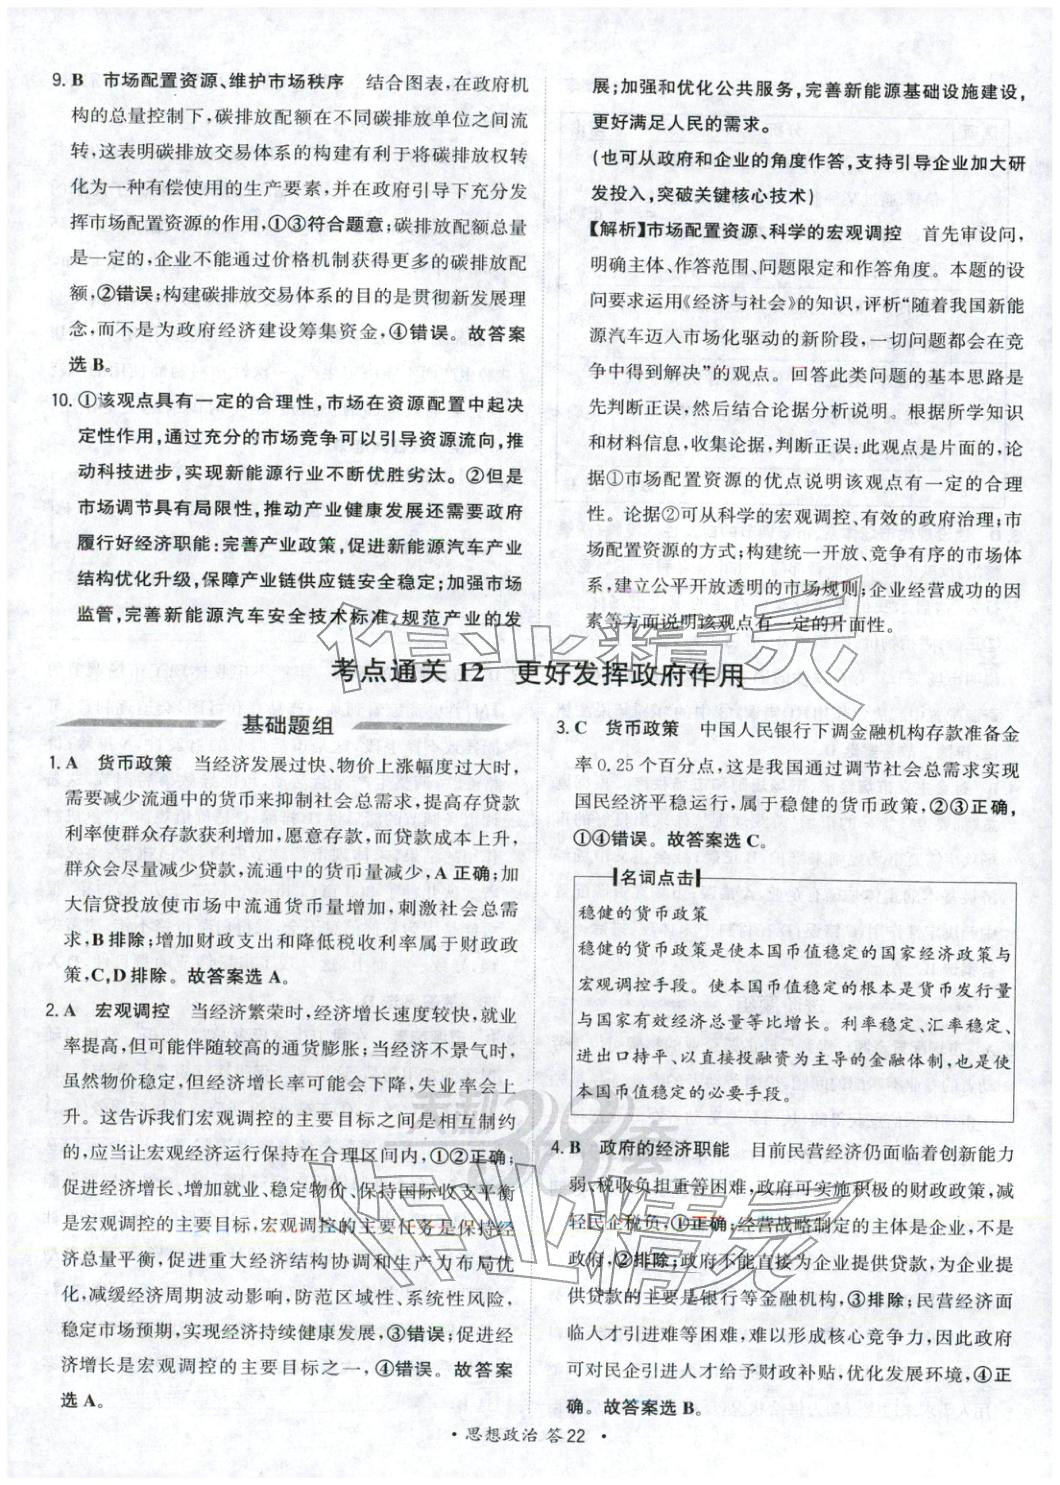 9. B　市场配置资源、维护市场秩序　结合图表,在政府机
构的总量控制下,碳排放配额在不同碳排放单位之间流
转,这表明碳排放交易体系的构建有利于将碳排放权转
化为一种有偿使用的生产要素,并在政府引导下充分发
挥市场配置资源的作用,①③符合题意;碳排放配额总量
是一定的,企业不能通过价格机制获得更多的碳排放配
额,②错误;构建碳排放交易体系的目的是贯彻新发展理
念,而不是为政府经济建设筹集资金,④错误。故答案
选 B。
10. ①该观点具有一定的合理性,市场在资源配置中起决
定性作用,通过充分的市场竞争可以引导资源流向,推
动科技进步,实现新能源行业不断优胜劣汰。②但是
市场调节具有局限性,推动产业健康发展还需要政府
履行好经济职能:完善产业政策,促进新能源汽车产业
结构优化升级,保障产业链供应链安全稳定;加强市场
监管,完善新能源汽车安全技术标准,规范产业的发
展;加强和优化公共服务,完善新能源基础设施建设,
更好满足人民的需求。
(也可从政府和企业的角度作答,支持引导企业加大研
发投入,突破关键核心技术)
【解析】市场配置资源、科学的宏观调控　首先审设问,
明确主体、作答范围、问题限定和作答角度。本题的设
问要求运用《经济与社会》的知识,评析“随着我国新能
源汽车迈入市场化驱动的新阶段,一切问题都会在竞
争中得到解决”的观点。回答此类问题的基本思路是
先判断正误,然后结合论据分析说明。根据所学知识
和材料信息,收集论据,判断正误:此观点是片面的,论
据①市场配置资源的优点说明该观点有一定的合理
性。论据②可从科学的宏观调控、有效的政府治理;市
场配置资源的方式;构建统一开放、竞争有序的市场体
系,建立公平开放透明的市场规则;企业经营成功的因
素等方面说明该观点有一定的片面性。
考点通关 12　更好发挥政府作用
基础题组
1. A　货币政策　当经济发展过快、物价上涨幅度过大时,
需要减少流通中的货币来抑制社会总需求,提高存贷款
利率使群众存款获利增加,愿意存款,而贷款成本上升,
群众会尽量减少贷款,流通中的货币量减少,A 正确;加
大信贷投放使市场中流通货币量增加,刺激社会总需
求,B 排除;增加财政支出和降低税收利率属于财政政
策,C、D 排除。故答案选 A。
2. A　宏观调控　当经济繁荣时,经济增长速度较快,就业
率提高,但可能伴随较高的通货膨胀;当经济不景气时,
虽然物价稳定,但经济增长率可能会下降,失业率会上
升。这告诉我们宏观调控的主要目标之间是相互制约
的,应当让宏观经济运行保持在合理区间内,①②正确;
促进经济增长、增加就业、稳定物价、保持国际收支平衡
是宏观调控的主要目标,宏观调控的主要任务是保持经
济总量平衡,促进重大经济结构协调和生产力布局优
化,减缓经济周期波动影响,防范区域性、系统性风险,
稳定市场预期,实现经济持续健康发展,③错误;促进经
济增长是宏观调控的主要目标之一,④错误。故答案
选 A。
3. C　货币政策　中国人民银行下调金融机构存款准备金
率 0.25 个百分点,这是我国通过调节社会总需求实现
国民经济平稳运行,属于稳健的货币政策,②③正确,
①④错误。故答案选 C。
名词点击
稳健的货币政策
稳健的货币政策是使本国币值稳定的国家经济政策与
宏观调控手段。使本国币值稳定的根本是货币发行量
与国家有效经济总量等比增长。利率稳定、汇率稳定、
进出口持平、以直接投融资为主导的金融体制,也是使
本国币值稳定的必要手段。
4. B　政府的经济职能　目前民营经济仍面临着创新能力
弱、税收负担重等困难,政府可实施积极的财政政策,减
轻民企税负,①正确;经营战略制定的主体是企业,不是
政府,②排除;政府不能直接为企业提供贷款,为企业提
供贷款的主要是银行等金融机构,③排除;民营经济面
临人才引进难等困难,难以形成核心竞争力,因此政府
可对民企引进人才给予财政补贴,优化发展环境,④正
确。故答案选 B。
作业精灵
天利38套
作业精灵
·思想政治 答 22·